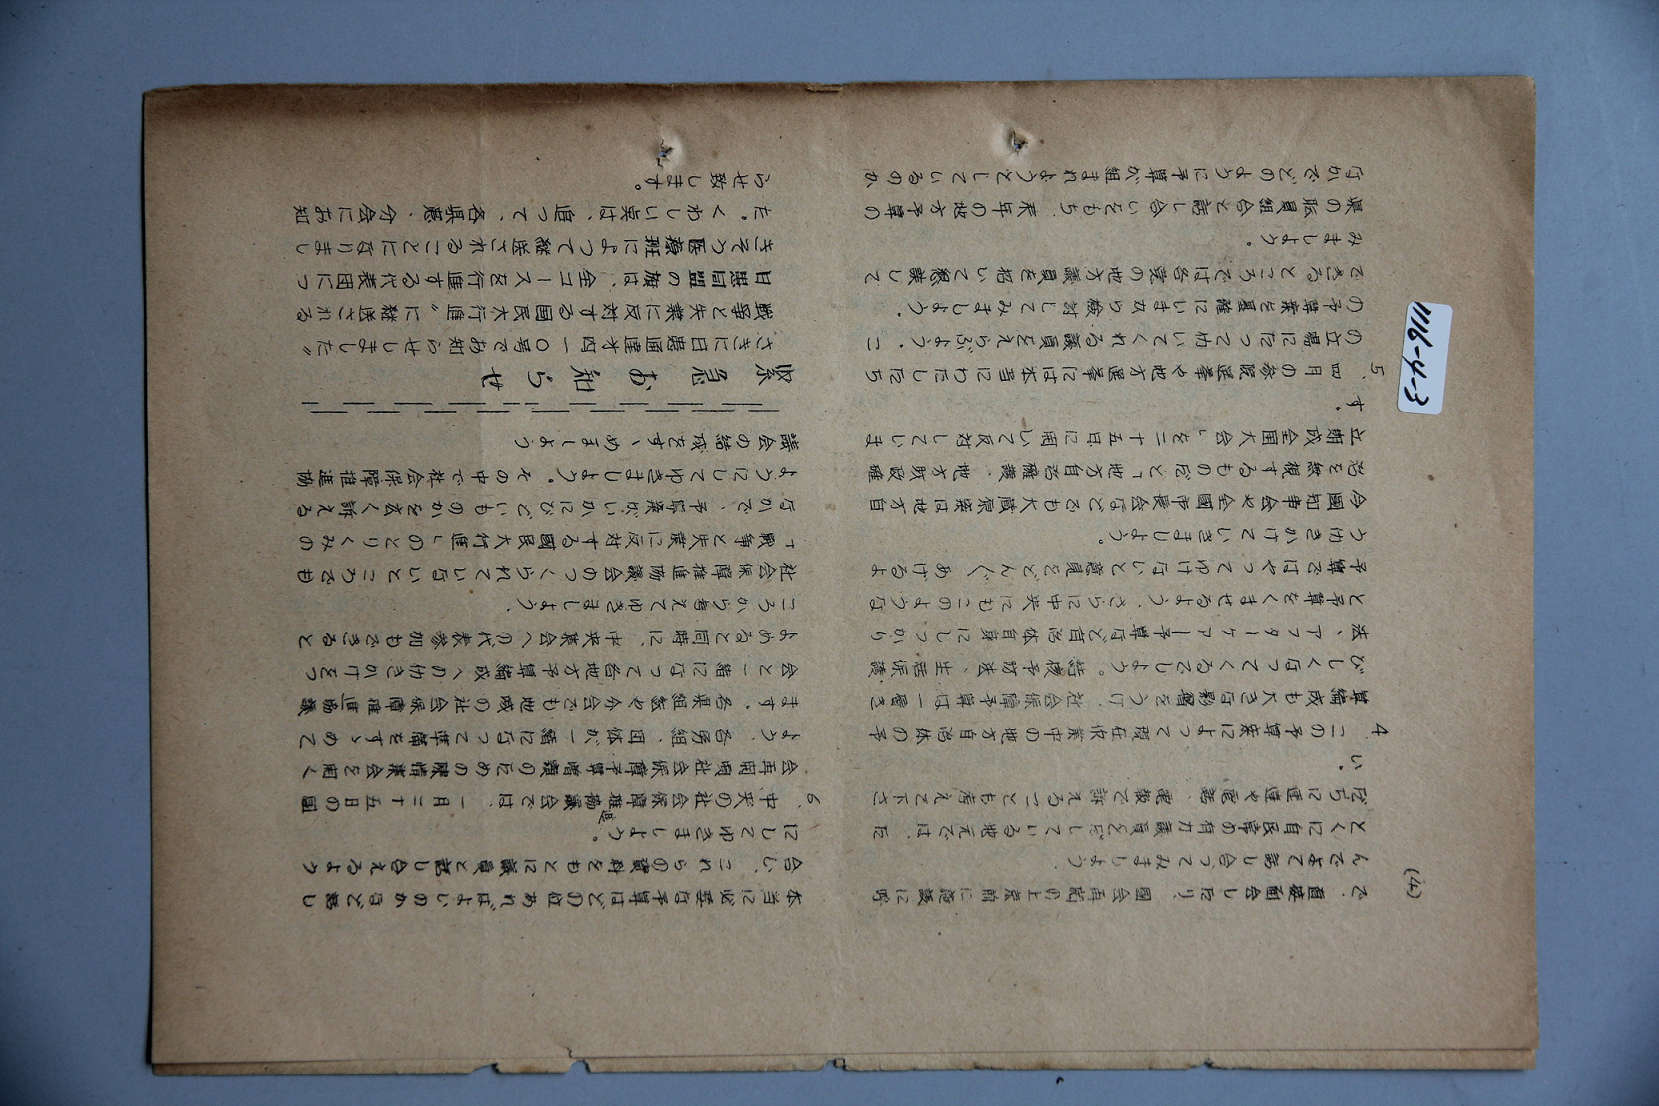 (続)
で、直接面会したり、國会再開の上京前に懇談に呼
んで話し合ってみましよう
とくに自民等の有力議員を出している地元では、た
だちに直達や電話、電報で訴えることも考えて下さ
い。
4、この予算案によって現在作業中の地方自治体の予
算編成も大きな影響をうけ、社会保障予算は一層き
びしくなってくるでしよう。結核予防法、生活保護
法、アフターケアー予算など自治体自身にしっかり
と予算をくませるよう、さらに中央にもこのような
予算ではやってゆけないと意見をどん〲あげるよ
う仂きかけていきましよう。
今國知事会や全國市長会などでも大蔵原案は地方自
治を無視するものだと「地方自治擁護、地方財政確
立期成全国大会」を二十五日に開いて反対していま
す。
5、四月の参院選挙や地方選挙には本当にわたしたち
の立場にたって仂いてくれる議員をえらぶよう、こ
の予算案を基礎にいまから検討してみましよう。
できるところでは各党の地方議員を招いて懇談して
みましよう。
県の職員組合と話し合いをもち、来年の地方予算の
なかでどのように予算が組まれようとしているのか
本当に必要な予算はどの位あればよいのかなど話し
合い、これらの資料をもとに議員と話し合えるよう
にしてゆきましよう。
6、中央の社会保障推進協議会では、一月二十五日の國
会再開明社会保障予算増額のための陳情集会を開く
よう、各労組、団体が一緒になって準備をすゝめて
ます。各県組懇や分会でも地域の社会保障推進協議
会と一緒になって各地方予算編成への仂きかけをつ
よめると同時に、中央集会への代表参加もできると
ころから考えてゆきましよう、
社会保障推進協議会のつくられていないところでも
「戦争と失業に反対する國民大行進」のとりくみの
なかで、予算案がいかにひどいものかを広く訴える
ようにしてゆきましよう。その中で社会保障推進協
議会の結成をすゝめましよう
緊急お知らせ
さきに日患通達才四一〇号でお知らせしました〝
戦争と失業に反対する国民大行進〟に継送される
日患同盟の旗は、全コースを行進する代表団につ
きそう医療班によって継送されることになりまし
た。くわしい点は、追って、各県懇、分会にお知
らせ致します。
1116-4-3